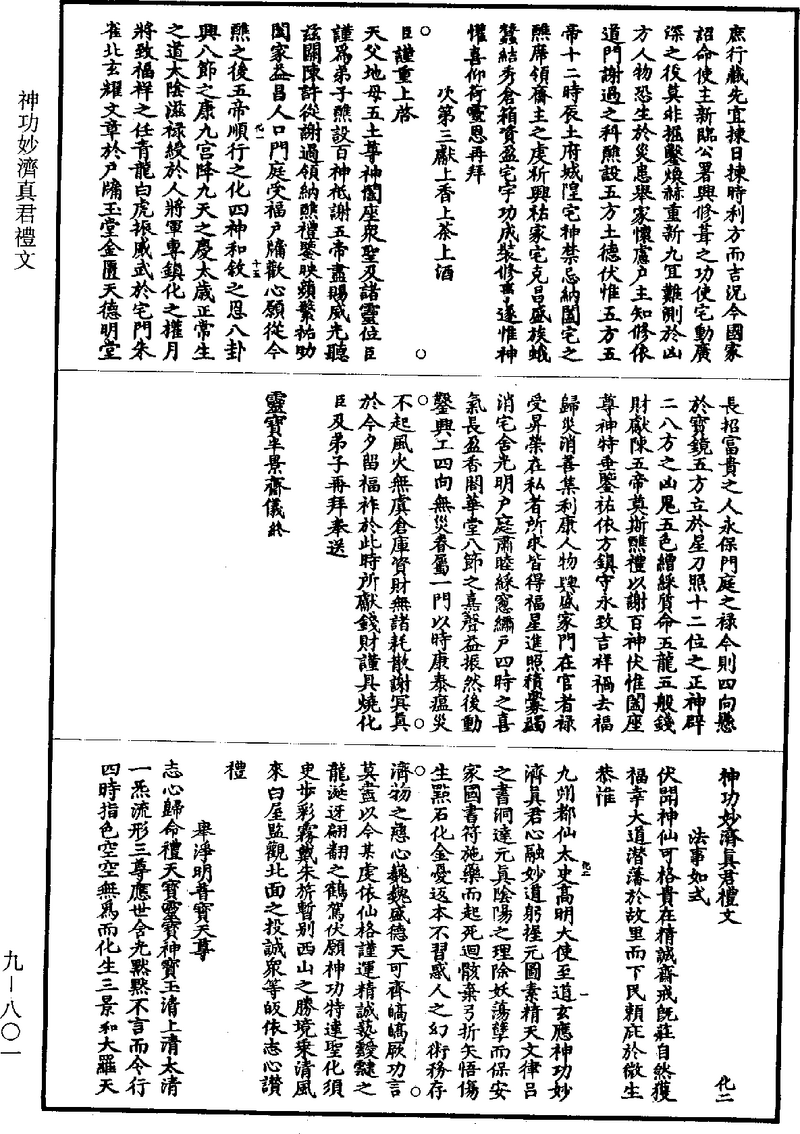 庶行藏先宜揀日揀時利方而吉況今國家
詔命使主新臨公署興修葺之功使宅動廣
深之後莫非掘鑿煥赫重新九宜難測於凶
方人物恐生於災患舉家懷慮戶主知修依
道門謝過之科醮設五方土德伏惟五方五
帝十二時辰土府城隍宅神禁忌納闔宅之
醮席領齋主之虔祈興祐家宅克昌盛族蛾
蠶結秀倉箱資盈宅宇功成裝修畢遂惟神
懽喜仰荷靈恩再拜
次第三獻上香上茶上酒
臣謹重上啓
天父地母五土尊神闔座衆聖及諸靈位臣
謹為弟子醮設百神祗謝五帝盡賜威光聽
茲關陳許從謝過領納醮禮鑒映蘋蘩祐助
闔家益昌人口門庭受福戶牖歡心願從今
化一
十五
醮之後五帝順行之化四神和敘之恩八卦
興八節之康九宮降九天之慶太歲正常生
之道太陰滋祿綬於人將軍專鎮化之權月
將致福祥之任青龍白虎振威武於宅門朱
雀北玄耀文章於戶牖玉堂金匱天德明堂
長招富貴之人永保門庭之祿今則四向懸
於寶鏡五方立於星刀照十二位之正神辟
二八方之凶鬼五色繒綵質命五龍五般錢
財獻陳五帝莫斯醮禮以謝百神伏惟闔座
尊神特垂鑒祐依方鎮守永致吉祥禍去福
歸災消善集利康人物興盛家門在官者祿
受昇榮在私者所求皆得福星進照積釁蠲
消宅舍光明戶庭肅睦綵窻繡戶四時之喜
氣長盈香閣華堂八節之嘉聲益振然後動
鑿興工四向無災眷屬一門以時康泰瘟災
不起風火無虞倉庫資財無諸耗散謝冥真
於今夕留福祚於此時所獻錢財謹具燒化
臣及弟子再拜奉送
靈寶半景齋儀終
神功妙濟真君禮文
化二
法事如式
伏聞神仙可格貴在精誠齋戒既莊自然獲
福幸大道潛藩於故里而下民賴庇於微生
恭惟
九州都仙太史高明大使至道玄應神功妙
化二
一
濟真君心融妙道躬握元圖素精天文律呂
之書洞達元真陰陽之理除妖蕩孽而保安
家國書符施藥而起死迴骸棄弓折矢悟傷
生點石化金憂返本不習惑人之幻術務存
濟物之應心巍巍盛德天可齊皜皜厥功言
莫盡以今某虔依仙格謹運精誠爇靉靆之
龍涎迓翩翩之鶴駕伏願神功特達聖化須
臾步彩霧戴朱旂暫別西山之勝境乘清風
來白屋監觀北面之投誠衆等皈依志心讚
禮
舉淨明普寶天尊
志心歸命禮天寶靈寶神寶玉清上清太清
一炁流形三尊應世含光默默不言而令行
四時指色空空無為而化生三景和大羅天
神功妙濟真君禮文
九—八〇一